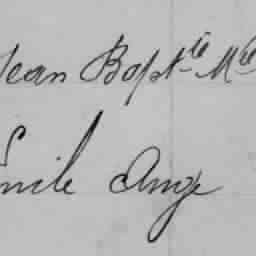 Jean Bapt.te M.ie
Emile Ange